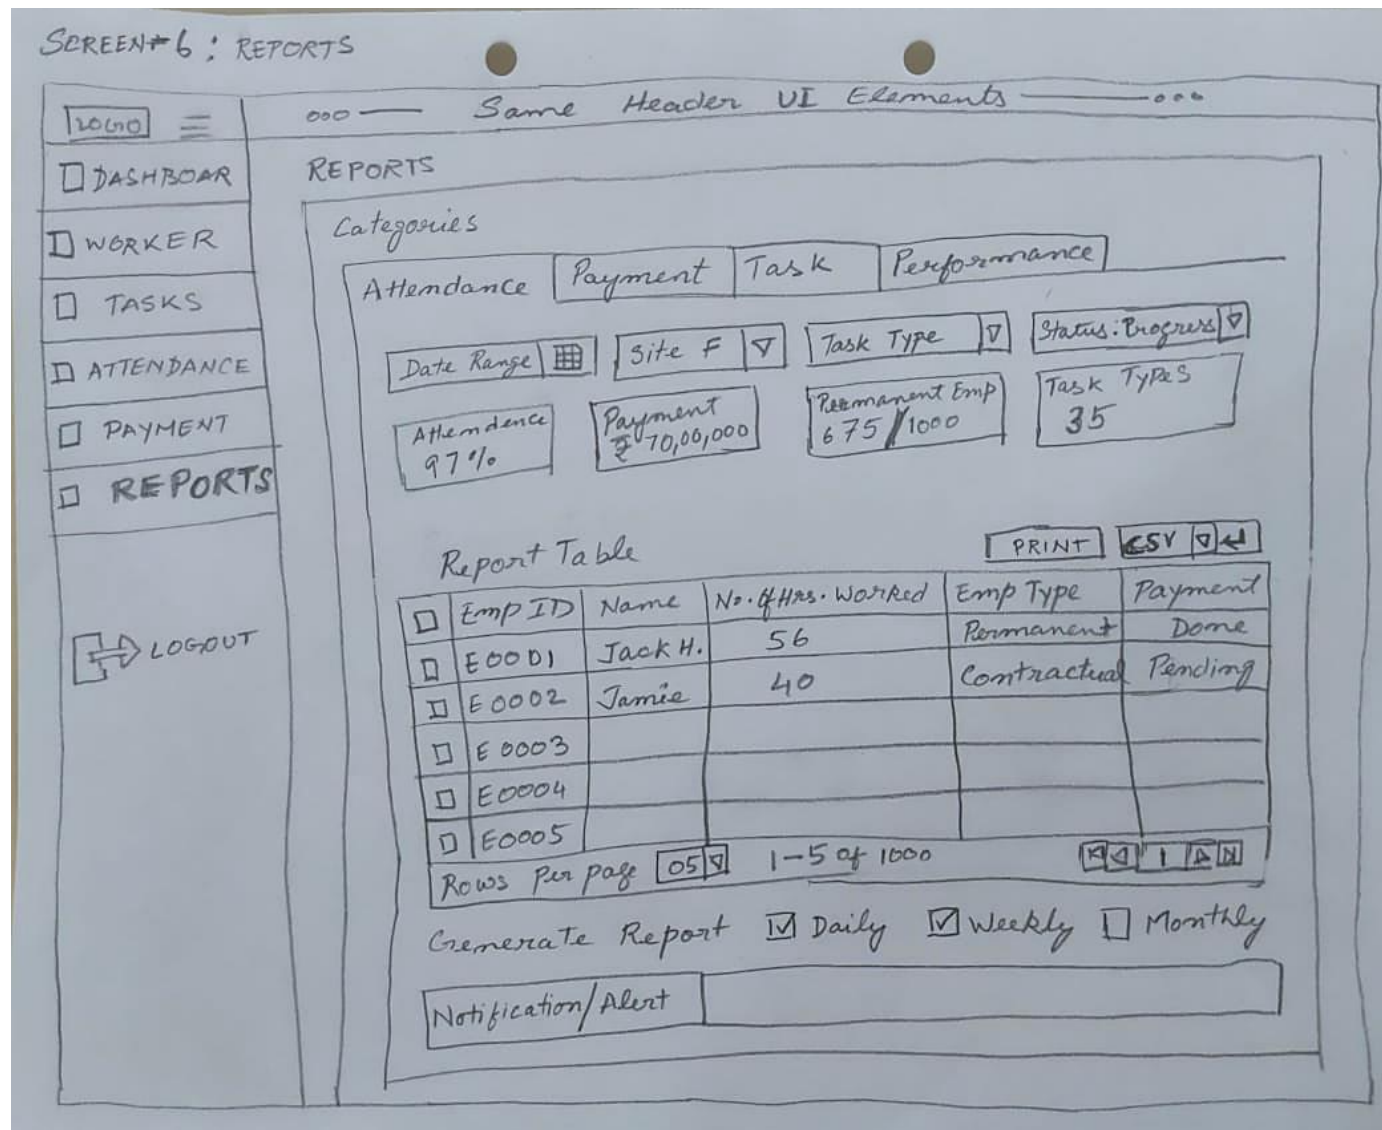 SCREEN#6: REPORTS
LOGO
ooo — Same Header UI Elements — ooo
DASHBOAR
WORKER
TASKS
ATTENDANCE
PAYMENT
REPORTS
LOGOUT
REPORTS
Categories
Attendance Payment Task Performance
Date Range Site F Task Type Status: Progress
Attendence Payment Permanent Emp Task Types
97% ₹ 70,00,000 675/1000 35
Report Table PRINT CSV
Emp ID Name No. Of Hrs. Worked Emp Type Payment
E0001 Jack H. 56 Permanent Done
E0002 Jamie 40 Contractual Pending
E0003
E0004
E0005
Rows Per page 05 1-5 of 1000 1
Generate Report Daily Weekly Monthly
Notification/Alert